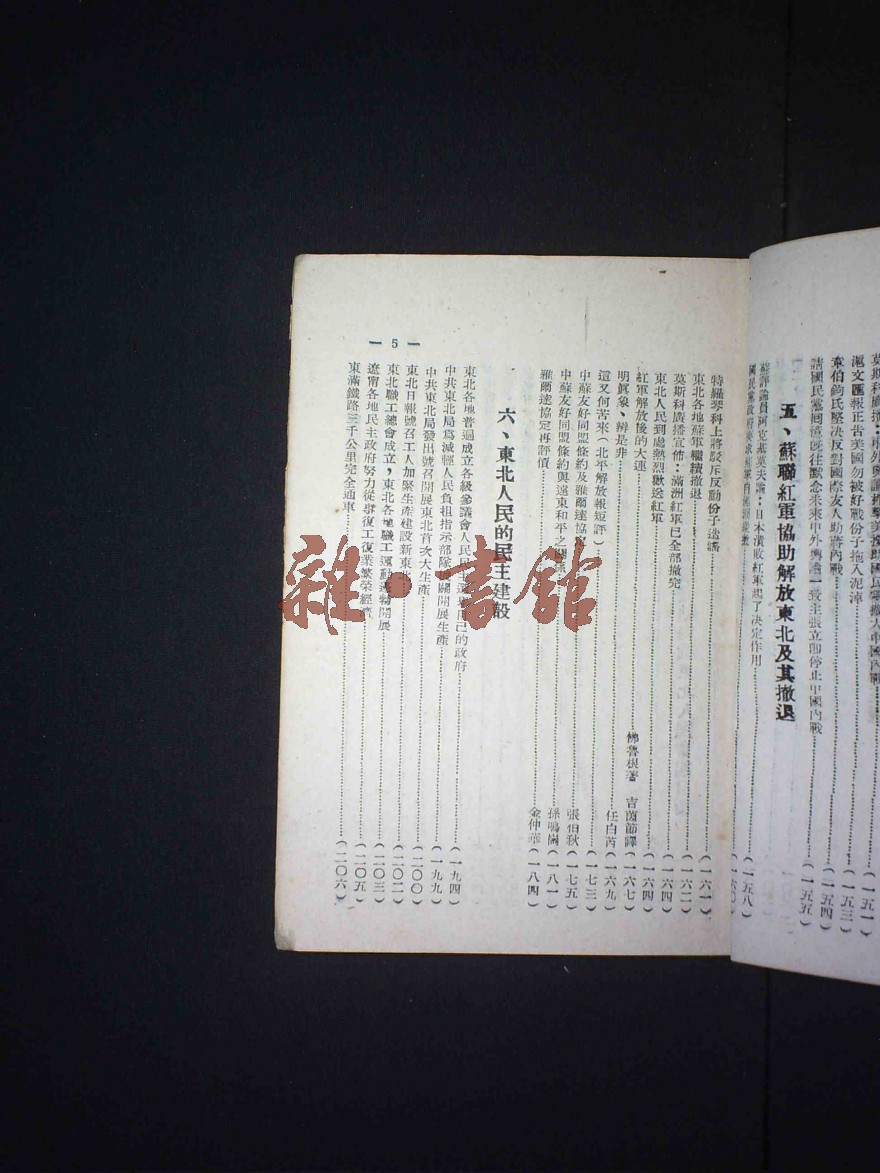 莫斯科廣播：中外輿論抨擊美援助國民黨擴大中國內戰……(一五一)
滬文匯報正告美國勿被好戰份子拖入泥淖……(一五三)
章伯鈞氏堅決反對國際友人助蔣內戰……(一五四)
請國民黨簡舊既往默念未來中外輿論一致主張立即停止中國內戰……(一五五)
五、蘇聯紅軍協助解放東北及其撤退
蘇評論員阿克基莫夫論：日本潰敗紅軍起了决定作用……(一五八)
國民黨政府要求紅軍自……(一六〇)
特羅琴科上將駁斥反動份子造謠……(一六一)
東北各地蘇軍繼續撤退……(一六二)
莫斯科廣播宣佈：滿洲紅軍已全部撤完……(一六四)
東北人民到處熱烈歡送紅軍……(一六四)
紅軍解放後的大連……佛魯根著 吉茵節譯(一六七)
明眞象、辨是非……任白芮(一六九)
這又何苦來(北平解放報短評)……(一七三)
中蘇友好同盟條約及雅爾達協定……張伯秋(一七五)
中蘇友好同盟條約與遠東和平之關係……孫鳴樹(一八一)
雅爾達協定再評價……金仲華(一八四)
六、東北人民的民主建設
東北各地普遍成立各級參議會人民民主選舉自己的政府……(一九四)
中共東北局爲減輕人民負担指示部隊機關開展生產……(一九九)
中共東北局發出號召開展東北首次大生產……(二〇〇)
東北日報號召工人加緊生產建設新東北……(二〇二)
東北職工總會成立，東北各地職工運動蓬勃開展……(二〇三)
遼甯各地民主政府努力從事復工復業繁榮經濟……(二〇五)
東滿鐵路三千公里完全通車……(二〇六)
— 5 —
雜·書館